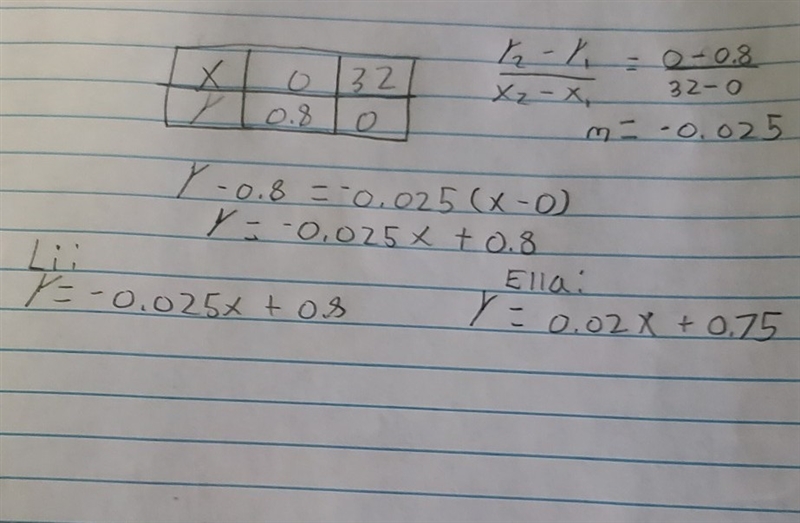 X 0 32
Y 0.8 0
Y₂ - Y₁ / X₂ - X₁ = 0 - 0.8 / 32 - 0
m = -0.025
Y - 0.8 = -0.025 (X - 0)
Y = -0.025X + 0.8
Li:
Y = -0.025X + 0.8
Ella:
Y = 0.02X + 0.75